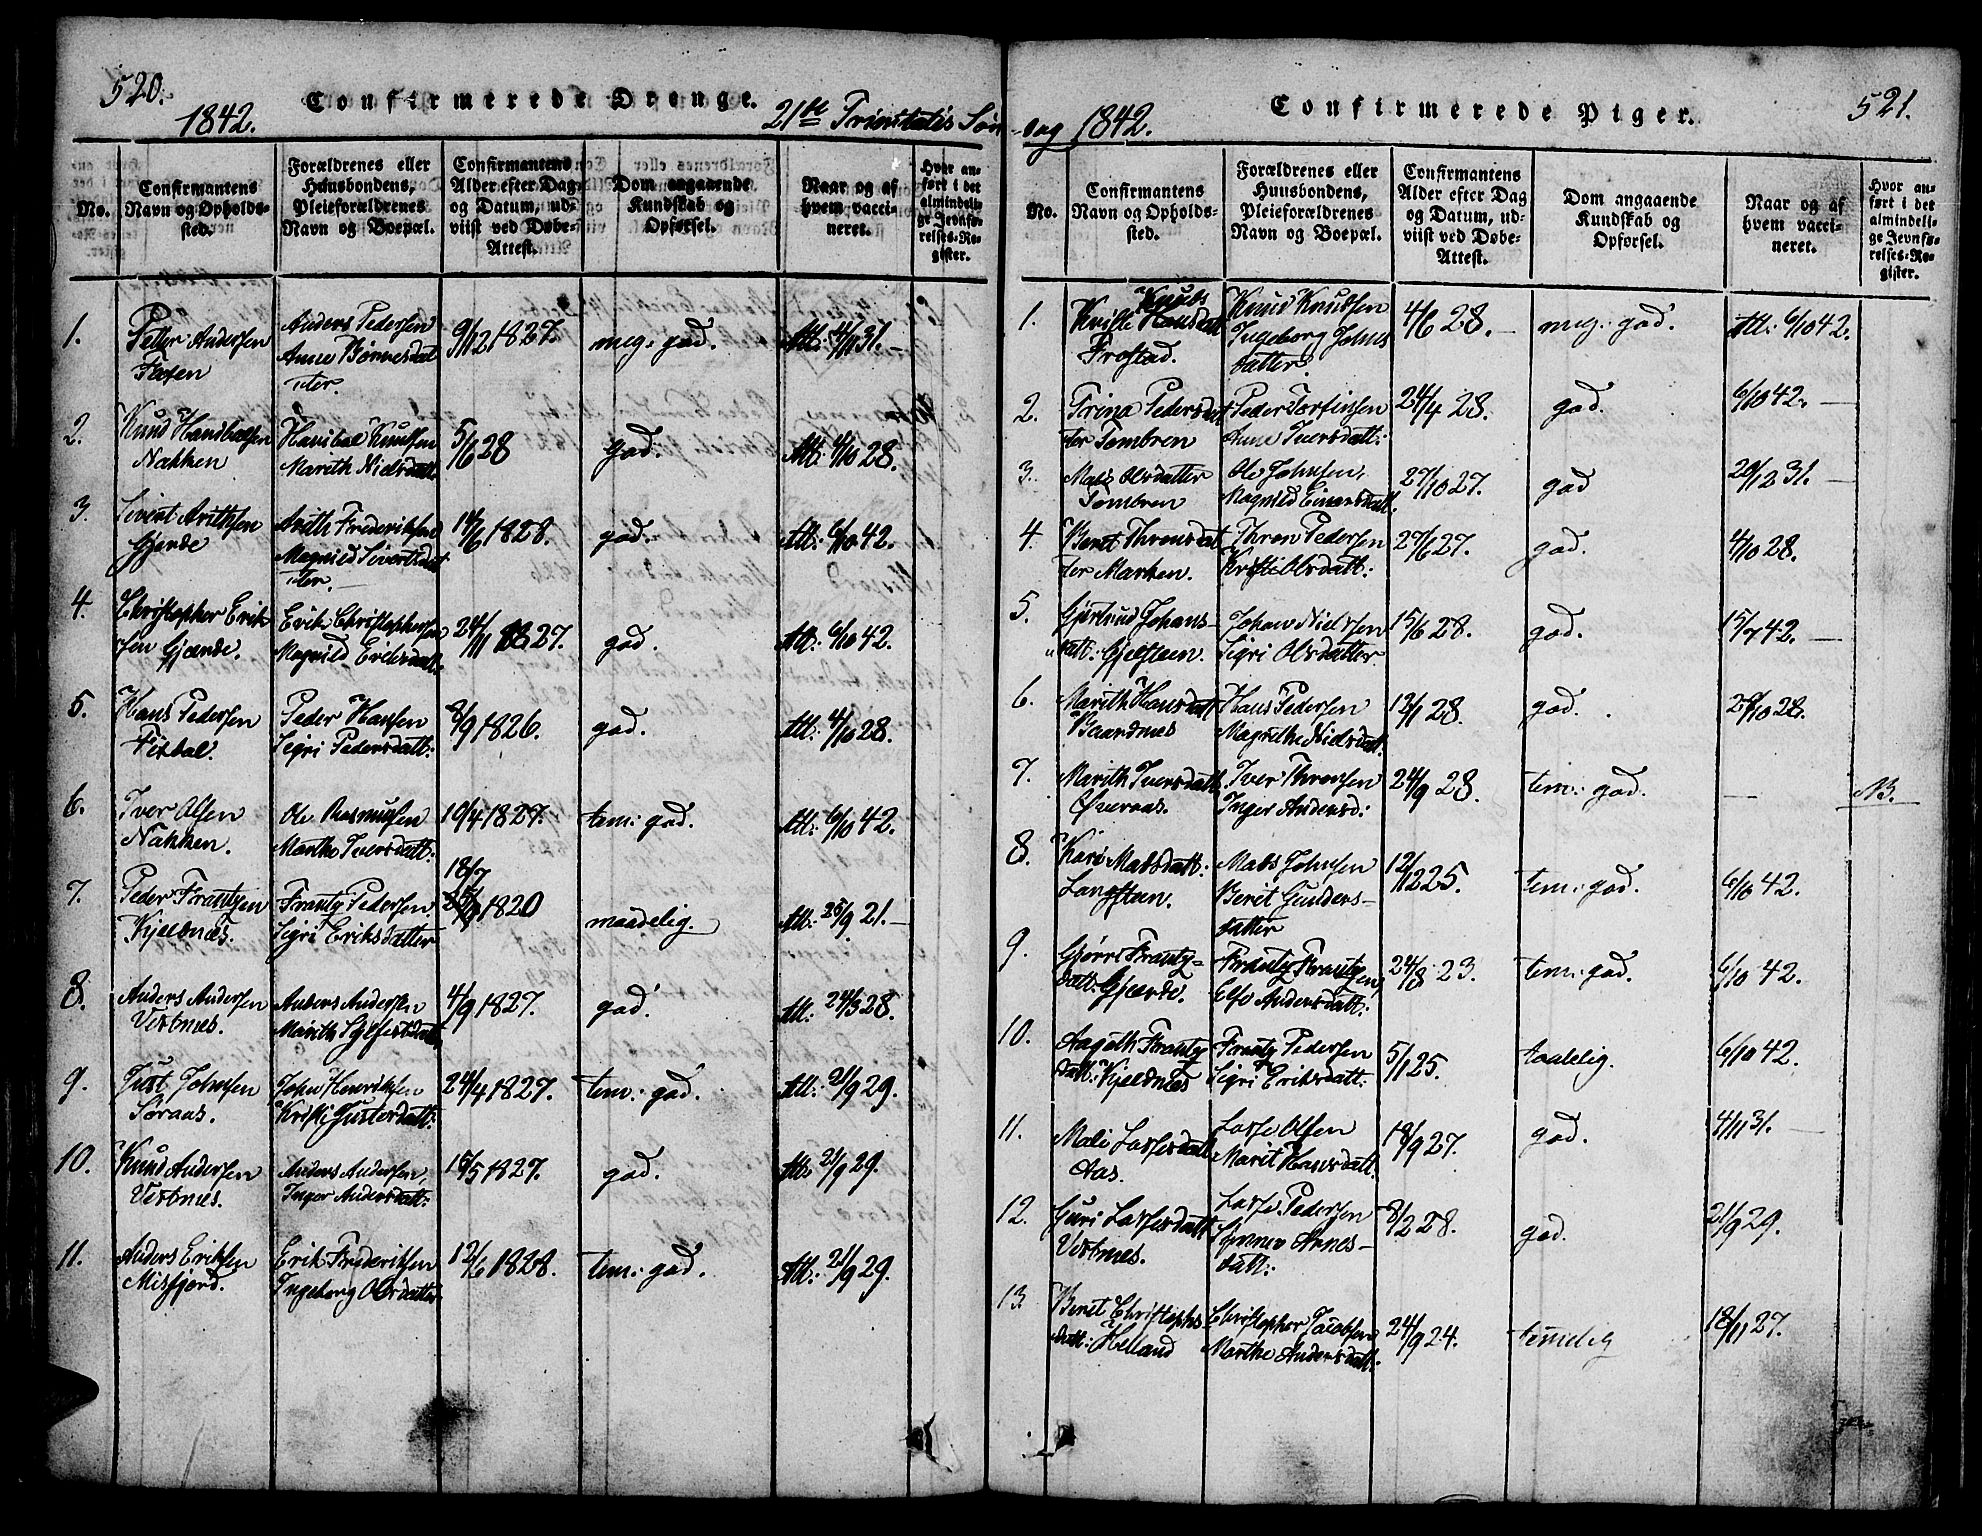 520.
Confirmerede Drenge.
1842.
21de Trinitatis Søn
No.
Confirmantens
Navn og Opholds-
sted.
Forældrenes eller
Huusbondens,
Pleieforældrenes
Navn og Boepæl.
Confirmantens
Alder efter Dag
og Datum, ud-
viist ved Døbe-
Attest.
Dom angaaende
Kundskab og
Opførsel.
Naar og af
hvem vacci-
neret.
Hvor an-
ført i det
almindeli-
ge Jevnfø-
relses-Re-
gister.
1.
Petter Andersen
Anders Pedersen
Anne
ter.
9/12 1827.
meg: god.
Att: 4/11 31.
2.
Knud Hanibalsen
Nakken
Hanibal Knudsen
Marith Nielsdatt
5/6 28
god.
Att: 4/10 28.
3.
Sivert Arithsen
Gjerde
Arith Frederiksen
Magnild Sivertsdat
ter.
14/6 1828.
god.
Att: 6/10 42.
4
Christopher Erik
sen Gjerde.
Erik Christophersen
Magnild Eriksdatt:
24/11 1827.
god.
Att: 6/10 42.
5.
Hans Pedersen
Peder Hansen
Sigri Pedersdatt:
8/9 1826.
god.
Att: 4/10 28.
6.
Iver Olsen
Nakken.
Ole Rasmusen
Marthe Iversdatt:
10/4 1827.
tem: god.
Att: 6/10 42.
7.
Peder Frantzen
Kjeldnæs.
Frantz Pedersen
Sigri Eriksdatter
18/7
1820
maadelig.
Att: 25/9 21.
8.
Anders Andersen
Vestnæs.
Anders Andersen
Marith Sylfestdatt
4/9 1827.
god.
Att: 24/3 28.
9.
Just Johnsen
Søraas.
John Henriksen
Kristi Justersdatt:
24/4 1827.
tem: god.
Att: 21/9 29.
10.
Knud Andersen
Vestnæs.
Anders Andersen,
Inger Andersdatt:
15/5 1827.
god.
Att: 21/9 29.
11.
Anders Eriksen
Misfjord.
Erik Frederiksen
Ingeborg Olsdatter
12/6 1828.
tem: god.
Att: 21/9 29.
Confirmerede Piger.
521.
dag 1842.
No.
Confirmantens
Navn og Opholds-
sted.
Forældrenes eller
Huusbondens,
Pleieforældrenes
Navn og Boepæl.
Confirmantens
Alder efter Dag
og Datum, ud-
viist ved Døbe-
Attest.
Dom angaaende
Kundskab og
Opførsel.
Naar og af
hvem vacci-
neret.
Hvor an-
ført i det
almindeli-
ge Jevnfø-
relses-Re-
gister.
1.
Knuds
Kristi Hansdatt
Frostad.
Knud Knudsen
Ingeborg Johns
datter.
4/6 28.
meg: god.
Att: 6/10 42.
2.
Trina Pedersdat
ter Tombren
Peder Torfinsen
Anne Iversdatt:
24/4 28.
god.
6/10 42.
3.
Mali Olsdatter
Tombren
Ole Johnsen,
Magnild Einersdatt.
27/10 27.
god
20/12 31.
4.
Beret Thronsdat
ter Marken.
Thron Pedersen
Kristi Olsdatt:
27/6 27.
god.
4/10 28.
5.
Gjertrud Johans-
datt: Gjelsteen.
Johan Nielsen
Sigri Olsdatter
15/6 28.
god.
15/7 42.
6.
Marith Hansdatt
Baardnæs
Hans Pedersen
Magrethe Nielsdatt.
12/1 28.
god.
28.
7.
Marith Iversdatt
Øveraas.
Iver Thronsen
Inger Andersd:
24/9 28.
tem: god.
—
NB.
8.
Kari Madsdatt:
Langsteen.
Mads Johnsen
Berit Gulders-
datter
12/12 25.
tem: god.
6/10 42.
9.
Gjørri Frantz-
datt: Gjerde.
Frantz Frantzen,
Else Andersdatt:
24/8 23.
tem: god.
6/10 42.
10.
Aagoth Frantz
datt: Kjeldnæs
Frantz Pedersen
Sigri Eriksdatt:
5/1 25.
taalelig.
6/10 42.
11.
Mali Lassesdatt
Aas.
Lasse Olsen
Marit Hansdatt:
18/9 27.
god.
4/11 31.
12.
Guri Lassesdatt
Vestnæs.
Lasse Pedersen
Synnev Arnes-
datt:
8/2 28.
god.
21/9 29.
13.
Beret Christophs
datt: Helland
Christopher Jacobsen
Marthe Andersdatt:
24/9 24.
temelig
18/11 27.